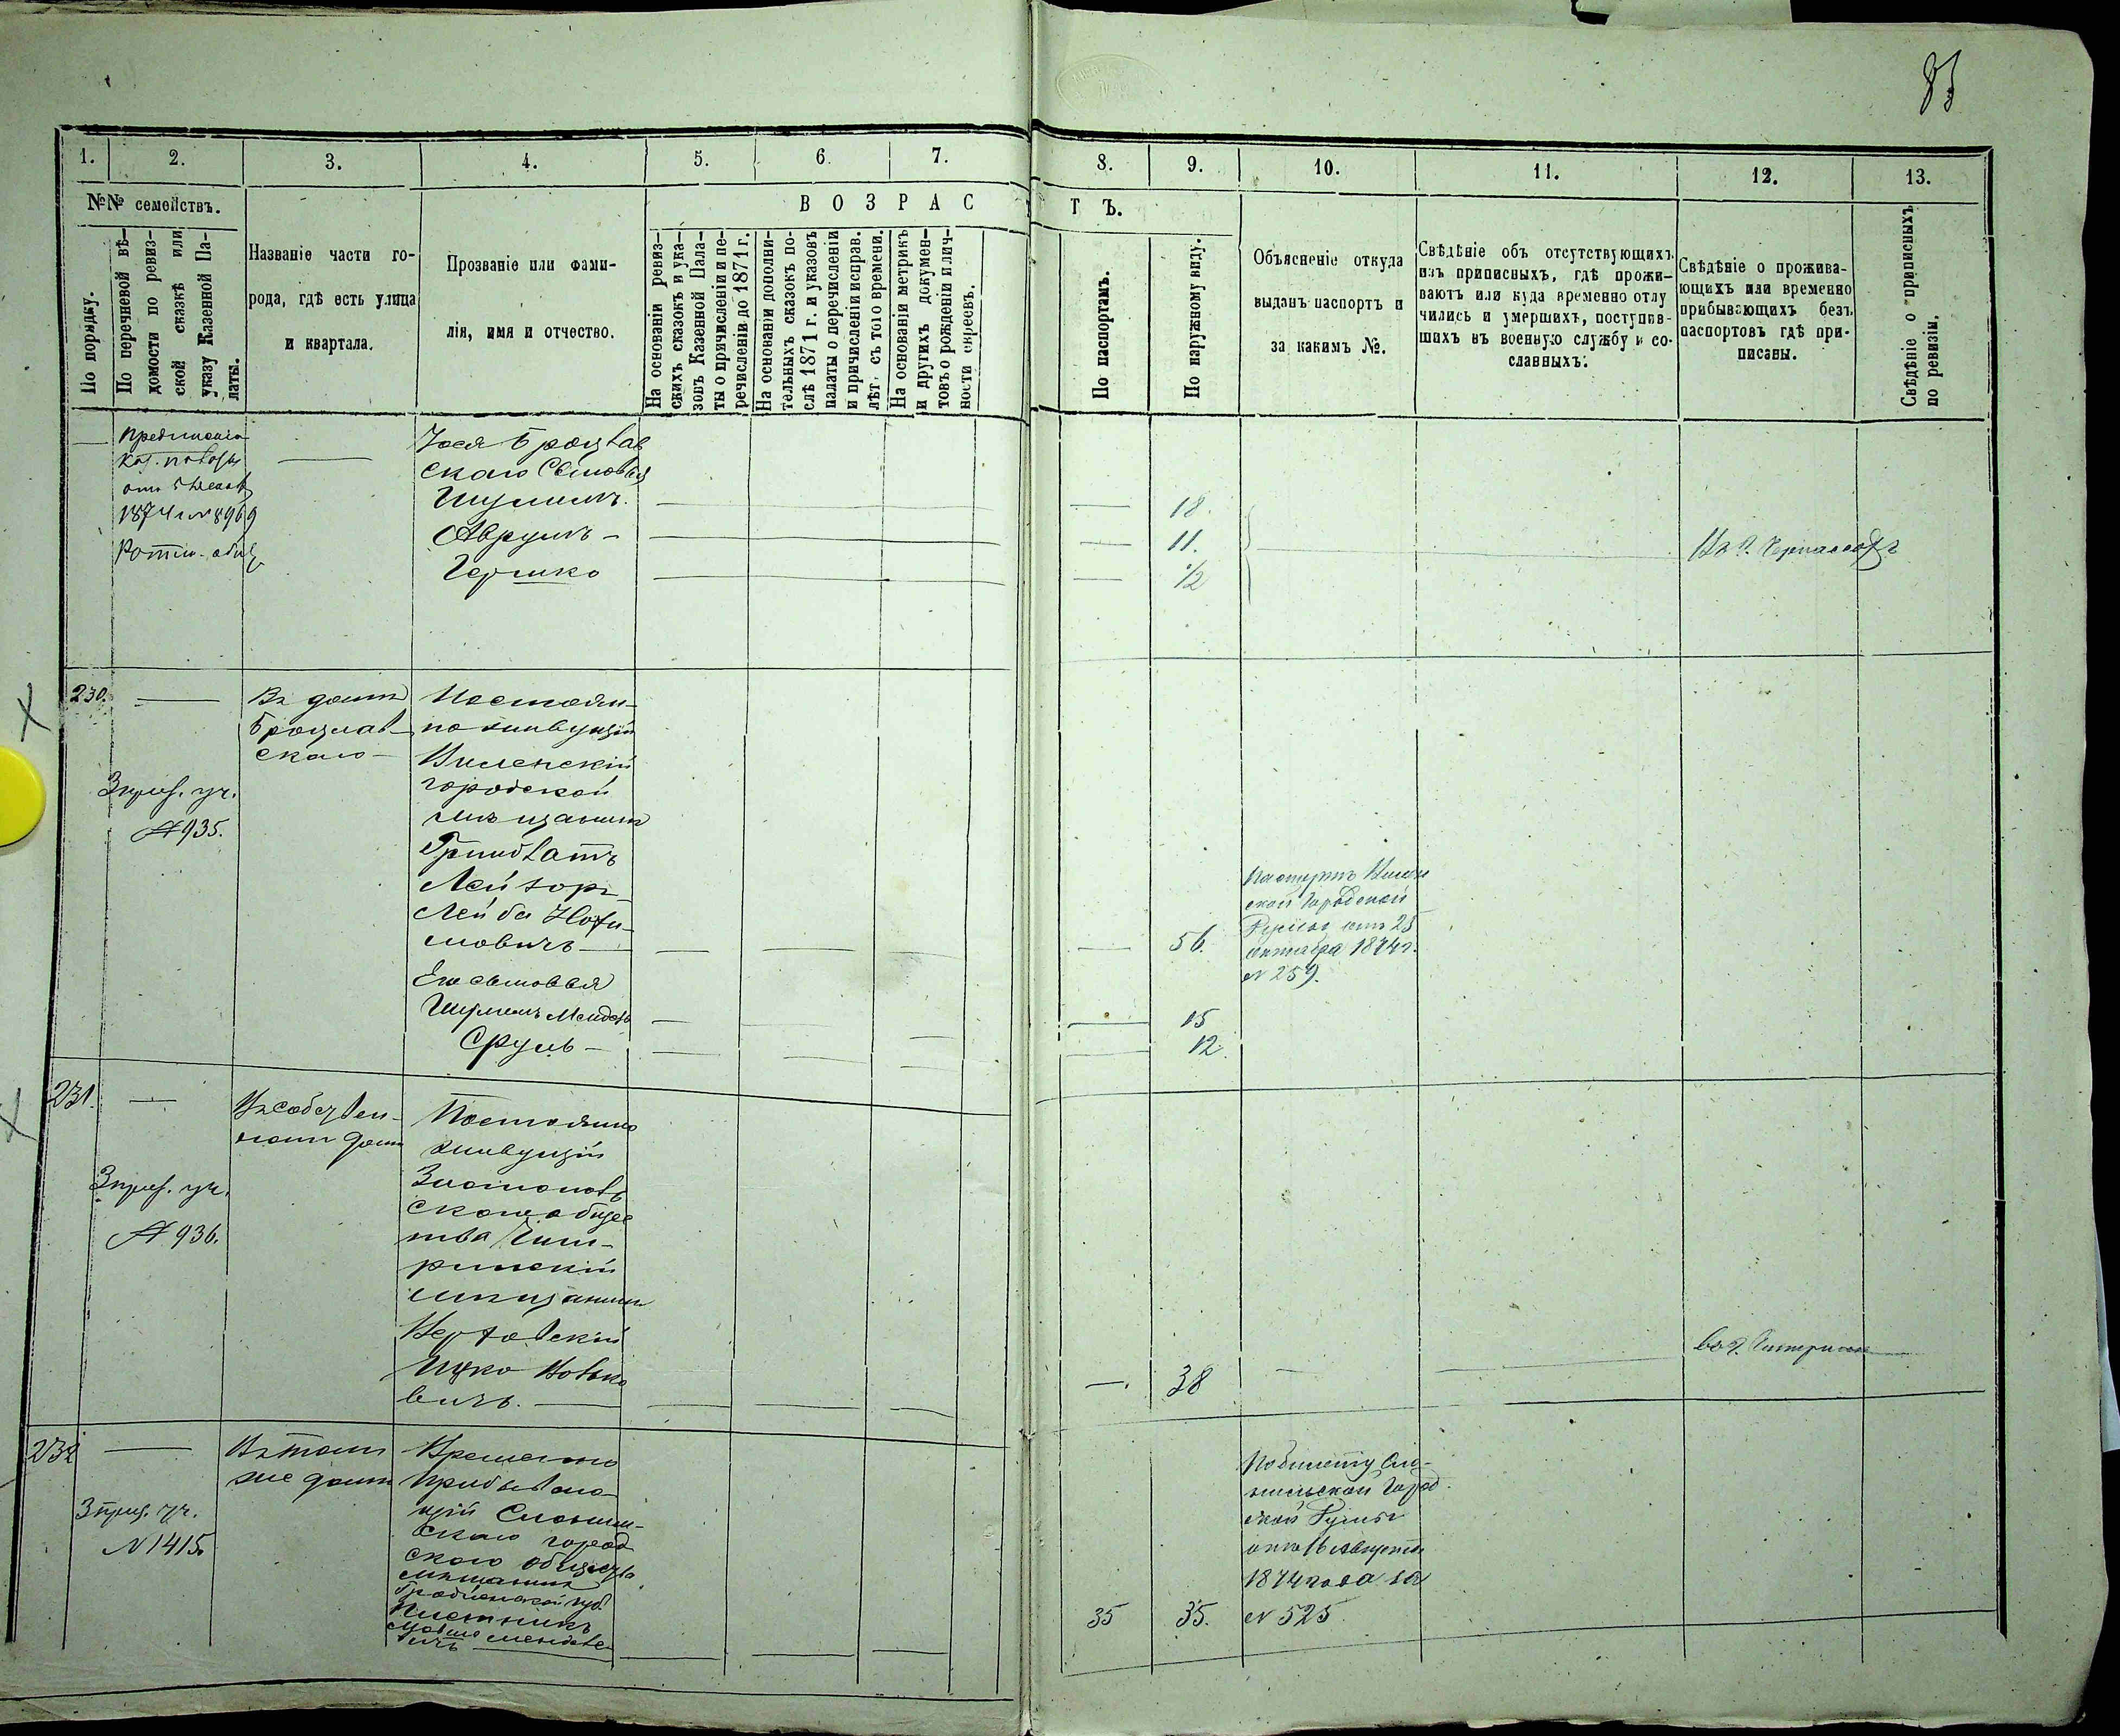 83
1. 2. 3. 4. 5. 6. 7. 8. 9. 10. 11. 12. 13.
№№ семействъ.
По порядку.
По перечневой вѣ-
домости по ревиз-
ской сказкѣ или
указу Казенной Па-
латы.
Названіе части го-
рода, гдѣ есть улица
и квартала.
Прозваніе или фами-
лія, имя и отчество.
ВОЗРАСТЪ.
На основаніи ревиз-
скихъ сказокъ и ука-
зовъ Казенной Пала-
ты о причисленіи и пе-
речисленіи до 1871 г.
На основаніи дополни-
тельныхъ сказокъ по-
слѣ 1871 г. и указовъ
палаты о перечисленіи
и причисленіи исправ.
лѣт. съ того времени.
На основаніи метрикъ
и другихъ докумен-
товъ о рожденіи и лич-
ности евреевъ.
По паспортамъ.
По наружному виду.
Объясненіе откуда
выданъ паспортъ и
за какимъ №.
Свѣдѣніе объ отсутствующихъ
изъ приписныхъ, гдѣ прожи-
ваютъ или куда временно отлу
чились и умершихъ, поступив-
шихъ въ военную службу и со-
славныхъ.
Свѣдѣніе о прожива-
ющихъ или временно
прибывающихъ безъ
паспортовъ гдѣ при-
писаны.
Свѣдѣніе о приписныхъ
по ревизіи.
1874 № 8969
Іося Брацлав
скаго Сыновья
Шулимъ 18.
Аврумъ 11.
Гершко 1/2
Въ г. Черкассахъ
230.
Въ домѣ
Брацлав-
скаго
3 приз. уч.
№ 935.
Постоян-
но живущій
Виленскій
городской
мѣщанинъ
Гринблатъ
Лейзоръ
Лейба
мовичъ 56.
Его сыновья
Шулимъ Мендель 15
Сруль 12.
Паспортъ Вилен
ской Городской
Думы отъ 25
октября 1874 г.
№ 259.
231.
Въ собствен-
номъ домѣ
3 приз. уч.
№ 936.
Постоянно
живущій
Златополь
скаго общес
тва Чиги-
ринскій
мѣщанинъ
Ицко
вичъ. 38
232
Въ томъ
же домѣ
3 приз. уч.
№ 1415.
Временно
прибываю
щій Слоним-
скаго город
скаго общества
мѣщанинъ
Гродненской губ.
Мовше Менделе
вичъ 35 35.
По билету Сло-
нимской Город
ской Думы
отъ 16 Августа
1874 года за
№ 525